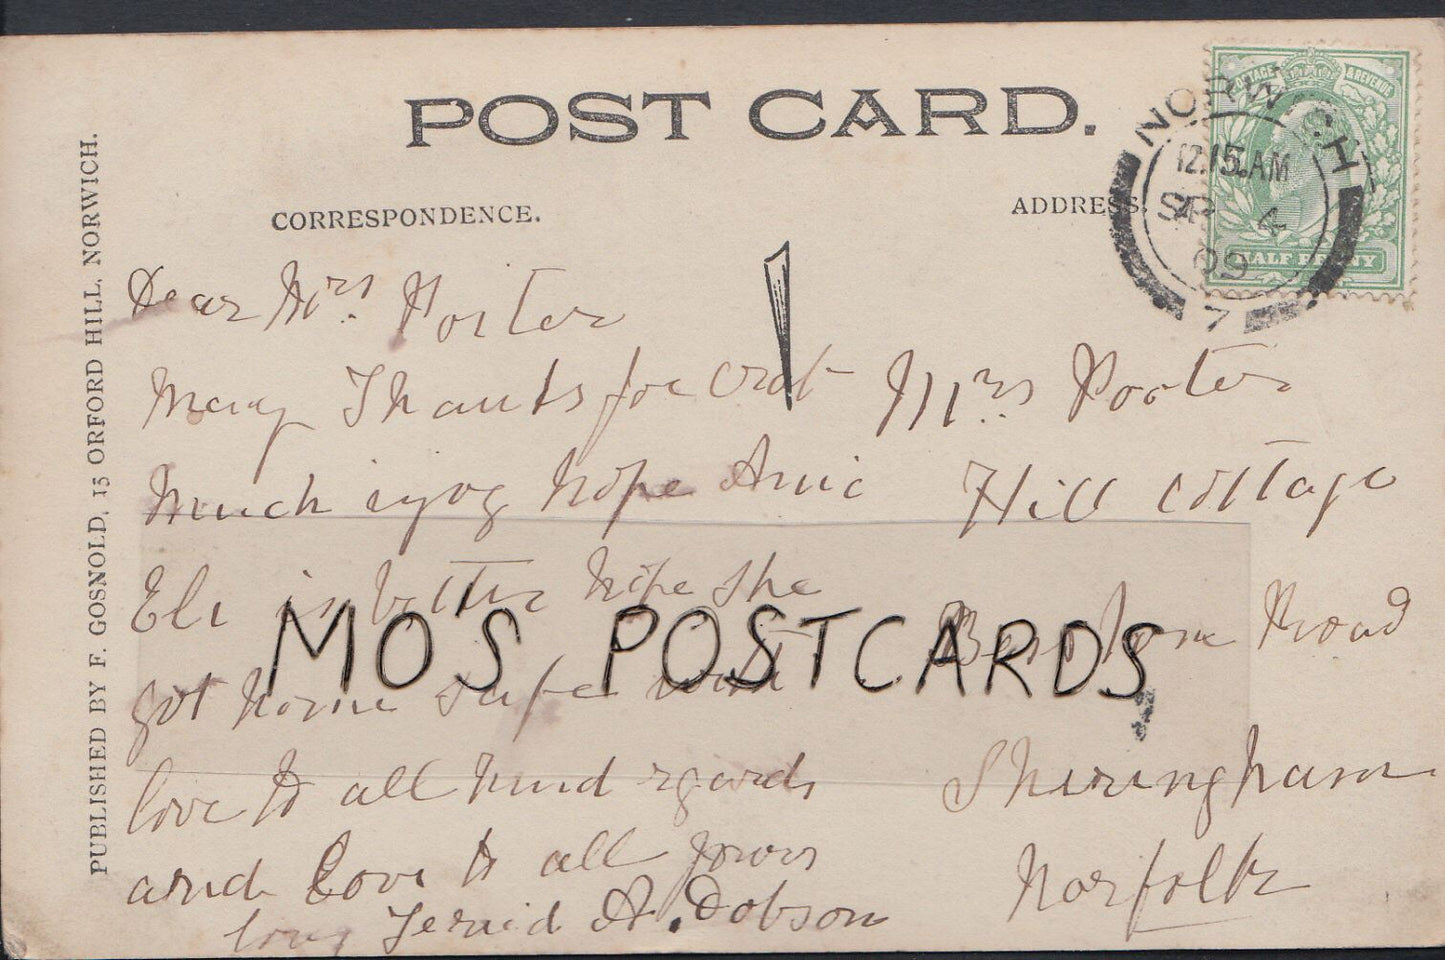 POST CARD.
CORRESPONDENCE.
ADDRESS.
PUBLISHED BY F. GOSNOLD, 15 ORFORD HILL, NORWICH.
NORWICH
12.15 AM
SP 4
09
7
POSTAGE & REVENUE
HALF PENNY
Dear Mrs. Porter
Many Thanks for Crab
Much hope
is better hope she
got home safe with
love to all kind regards
and Love to all yours
A. Dobson
Mrs Porter
Hill Cottage
Road
Sheringham
Norfolk
MO'S POSTCARDS